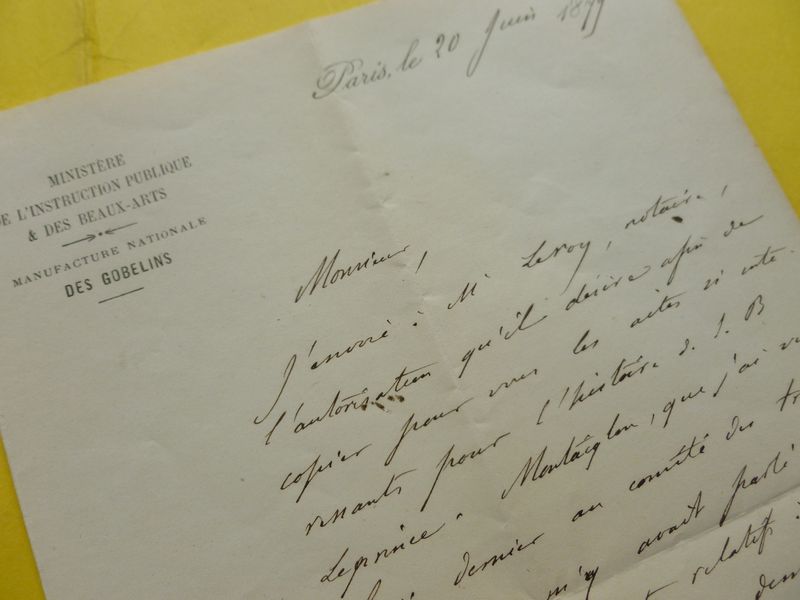 Paris, le 20 Juin 1879
MINISTÈRE
DE L'INSTRUCTION PUBLIQUE
& DES BEAUX-ARTS
MANUFACTURE NATIONALE
DES GOBELINS
Monsieur,
J'envoie à Mr Leroy, notaire,
l'autorisation qu'il désire afin de
copier pour vous les actes si inté-
ressants pour l'histoire de J. B
Leprince. Montaiglon, que j'ai vu
dernier au comité des tr
m'y avait parlé
relatifs